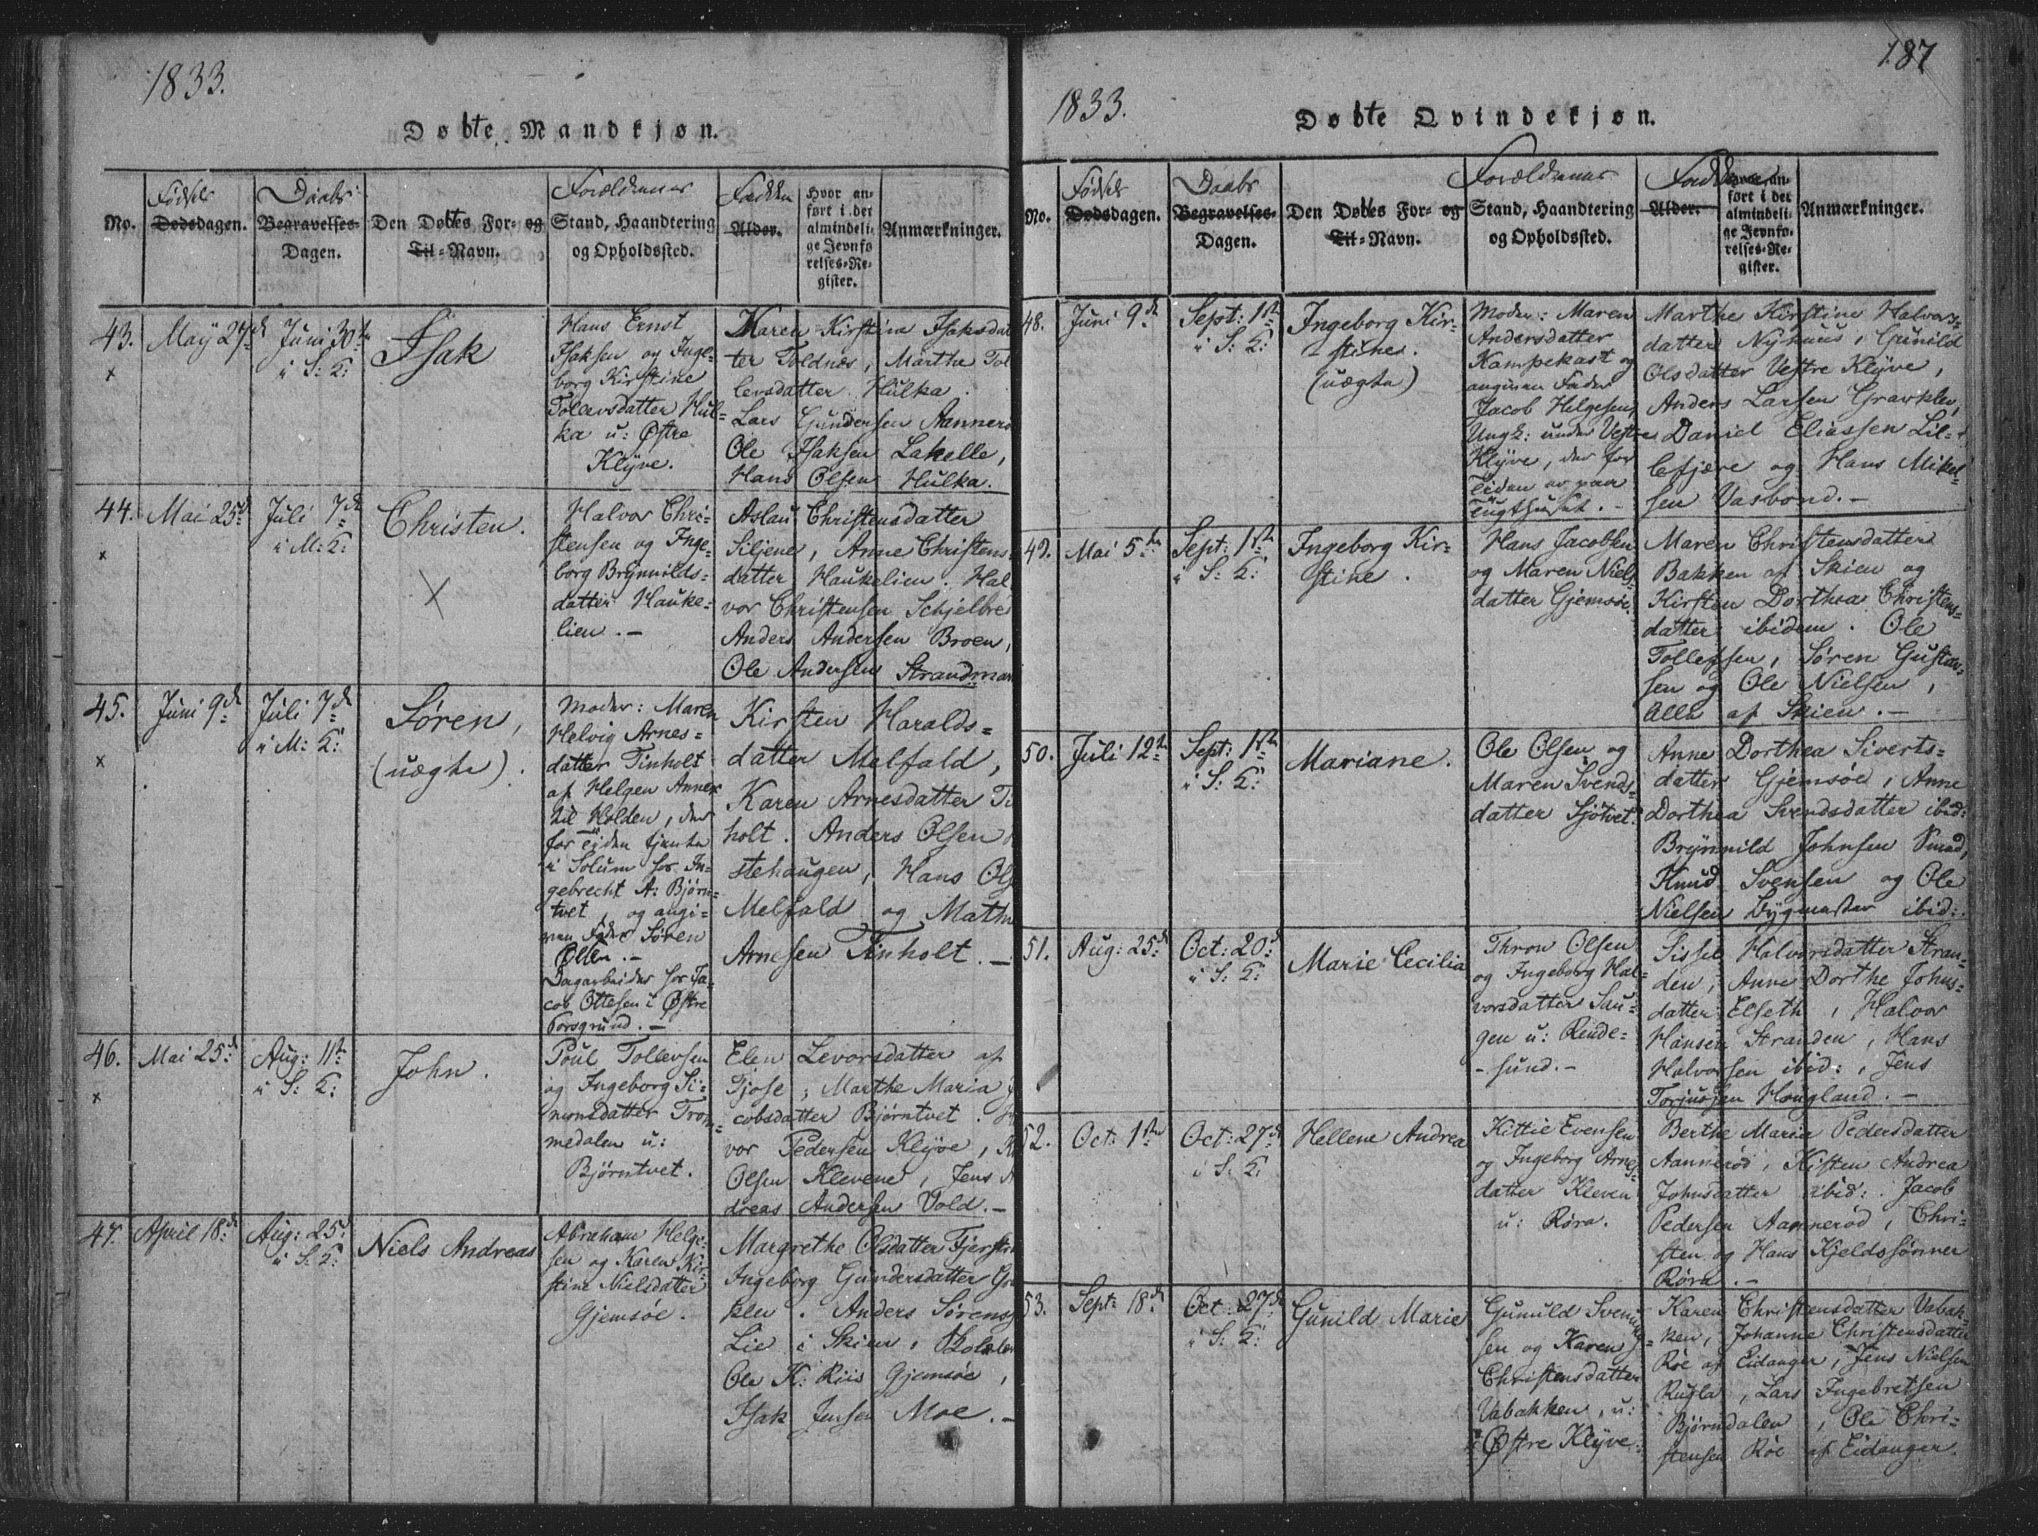 1833.
Døbte Mandkjøn.
No.
Fødsels
Dødsdagen.
Daabs
Begravelses-
Dagen.
Den Døbtes For- og
Til-Navn.
Forældrenes
Stand, Haandtering
og Opholdssted.
Fadderne
Alder.
Hvor an-
ført i det
almindeli-
ge Jevnfø
relses-Re-
gister.
Anmærkninger.
43.
x
May 27de
Juni 30te
i S: K:
Isak
Hans Ernst
Isaksen og Inge-
borg Kirstine
Tollevsdatter Hul-
ka u: Østre
Klÿve.
Karen Kirstine Isaksdat
ter Toldnæs, Marthe Tol
levsdatter Hulka.
Lars Gundersen Aanners
Ole Isaksen Lakolle,
Hans Olsen Hulka.
44.
x
Mai 25de
Juli 7de
i M: K:
Christen.
X
Halvor Chri-
stensen og Inge-
borg Brynnilds-
datter Hauke-
lien. -
Aslau Christensdatter
Siljene, Anne Christens-
datter Haukelien. Hal
vor Christensen Schjelbre
Anders Andersen Broen,
Ole Andersen Strandman
45.
x
Juni 9de
Juli 7de
i M: K:
Søren,
(uægte).
Moder: Maren
Helvig Arnes-
datter Tinholt
af Helgen Annex
til Holden, der
for Tiden tjente
i Solum hos In-
gebrecht A: Bjørn-
tvet, og angi-
ven Fader Søren
Olsen. -
Dagarbeider hos Ja-
cob Ottesen i Østre
Porsgrund. -
Kirsten Haralds-
datter Melfald,
Karen Arnesdatter Ti
holt. Anders Olsen
stehaugen, Hans Ols
Melfald og Mathi
Arnesen Tinholt. -
46.
x
Mai 25de
Aug: 11te
i S: K:
John.
Poul Tollevsen
og Ingeborg Si-
monsdatter Trom-
medalen u:
Bjørntvet.
Elen Levorsdatter af
Tjose, Marthe Maria
cobsdatter Bjørntvet.
vor Pedersen Klÿve,
Olsen Klevene, Jens
dreas Andersen Vold. -
47.
April 18de
Aug: 25de
i S: K:
Niels Andreas
Abraham Helge-
sen og Karen Kir-
stine Nielsdatter
Gjemsøe.
Margrethe Olsdatter Fjerstr
Ingeborg Gundersdatter Gra
klev. Anders Sørens
Lie i Skien,
Ole K: Riis Gjemsøe,
Isak Jensen Moe. -
187
1833.
Døbte Qvindekjøn.
No.
Fødsels
Dødsdagen.
Daabs
Begravelses-
Dagen.
Den Døbtes For- og
Til-Navn.
Forældrenes
Stand, Haandtering
og Opholdssted.
Fadderne
Alder.
Hvor an-
ført i det
almindeli-
ge Jevnfø-
relses-Re-
gister.
Anmærkninger.
48.
Juni 9de
Sept: 1ste
i S: K:
Ingeborg Kir-
stine.
(uægte)
Moder: Maren
Andersdatter
Kampekast og
angiven Fader
Jacob Helgesen,
Ungk: under Vestre
Klÿve, der for
Tiden er paa
Tugthuset. -
Marthe Kirstine Halvors-
datter Nÿhuus, Gunild
Olsdatter Vestre Klÿve,
Anders Larsen Gravklev,
Daniel Eliassen Lil-
lefjære og Hans Mikel
sen Vasbond. -
49.
Mai 5te
Sept: 1ste
i S: K:
Ingeborg Kir-
stine.
Hans Jacobsen
og Maren Niels-
datter Gjemsøe.
Maren Christensdatter
Bakken af Skien og
Kirsten Dorthea Christens-
datter ibidem. Ole
Tollefsen, Søren Gustav-
sen og Ole Nielsen,
Alle af Skien. -
50.
Juli 12te
Sept: 1ste
i S: K:
Mariane.
Ole Olsen og
Maren Svends-
datter Sjøtvet.
Anne Dorthea Siverts-
datter Gjemsøe, Anne
Dorthea Svendsdatter ibid:
Brÿnnild Johnsen Smed,
Knud Svensen og Ole
Nielsen Bygmester ibid:.
51.
Aug: 25de
Oct: 20de
i S: K:
Marie Cecilia
Thron Olsen
og Ingeborg Hal-
vorsdatter Sau-
gen u: Rinde-
-sund. -
Sissel Halvorsdatter Stran-
den, Anne Dorthe Johns-
datter Elseth, Halvor
Hansen Stranden, Hans
Halvorsen ibid:, Jens
Torjusen Hougland. -
52.
Oct: 1ste
Oct: 27de
i S: K:
Hellene Andrea
Kittil Evensen
og Ingeborg Arnes-
datter Kleven
u: Røra.
Berthe Maria Pedersdatter
Aannerød, Kisten Andrea
Johnsdatter ibid:. Jacob
Pedersen Aannerød, Chri-
sten og Hans Kjeldssønner
Røra. -
53.
Sept: 18de
Oct: 27de
i S: K:
Gunild Marie
Gunuld Svenn-
sen og Karen
Christensdatter
Vabakken, u:
Østre Klÿve.
Karen Christensdatter Vabak-
ken, Johanne Christensdatter
Røe af Eidanger, Jens Nielsen
Rugla, Lars Ingebretsen
Bjørndalen, Ole Chri-
stensen Røe af Eidanger.